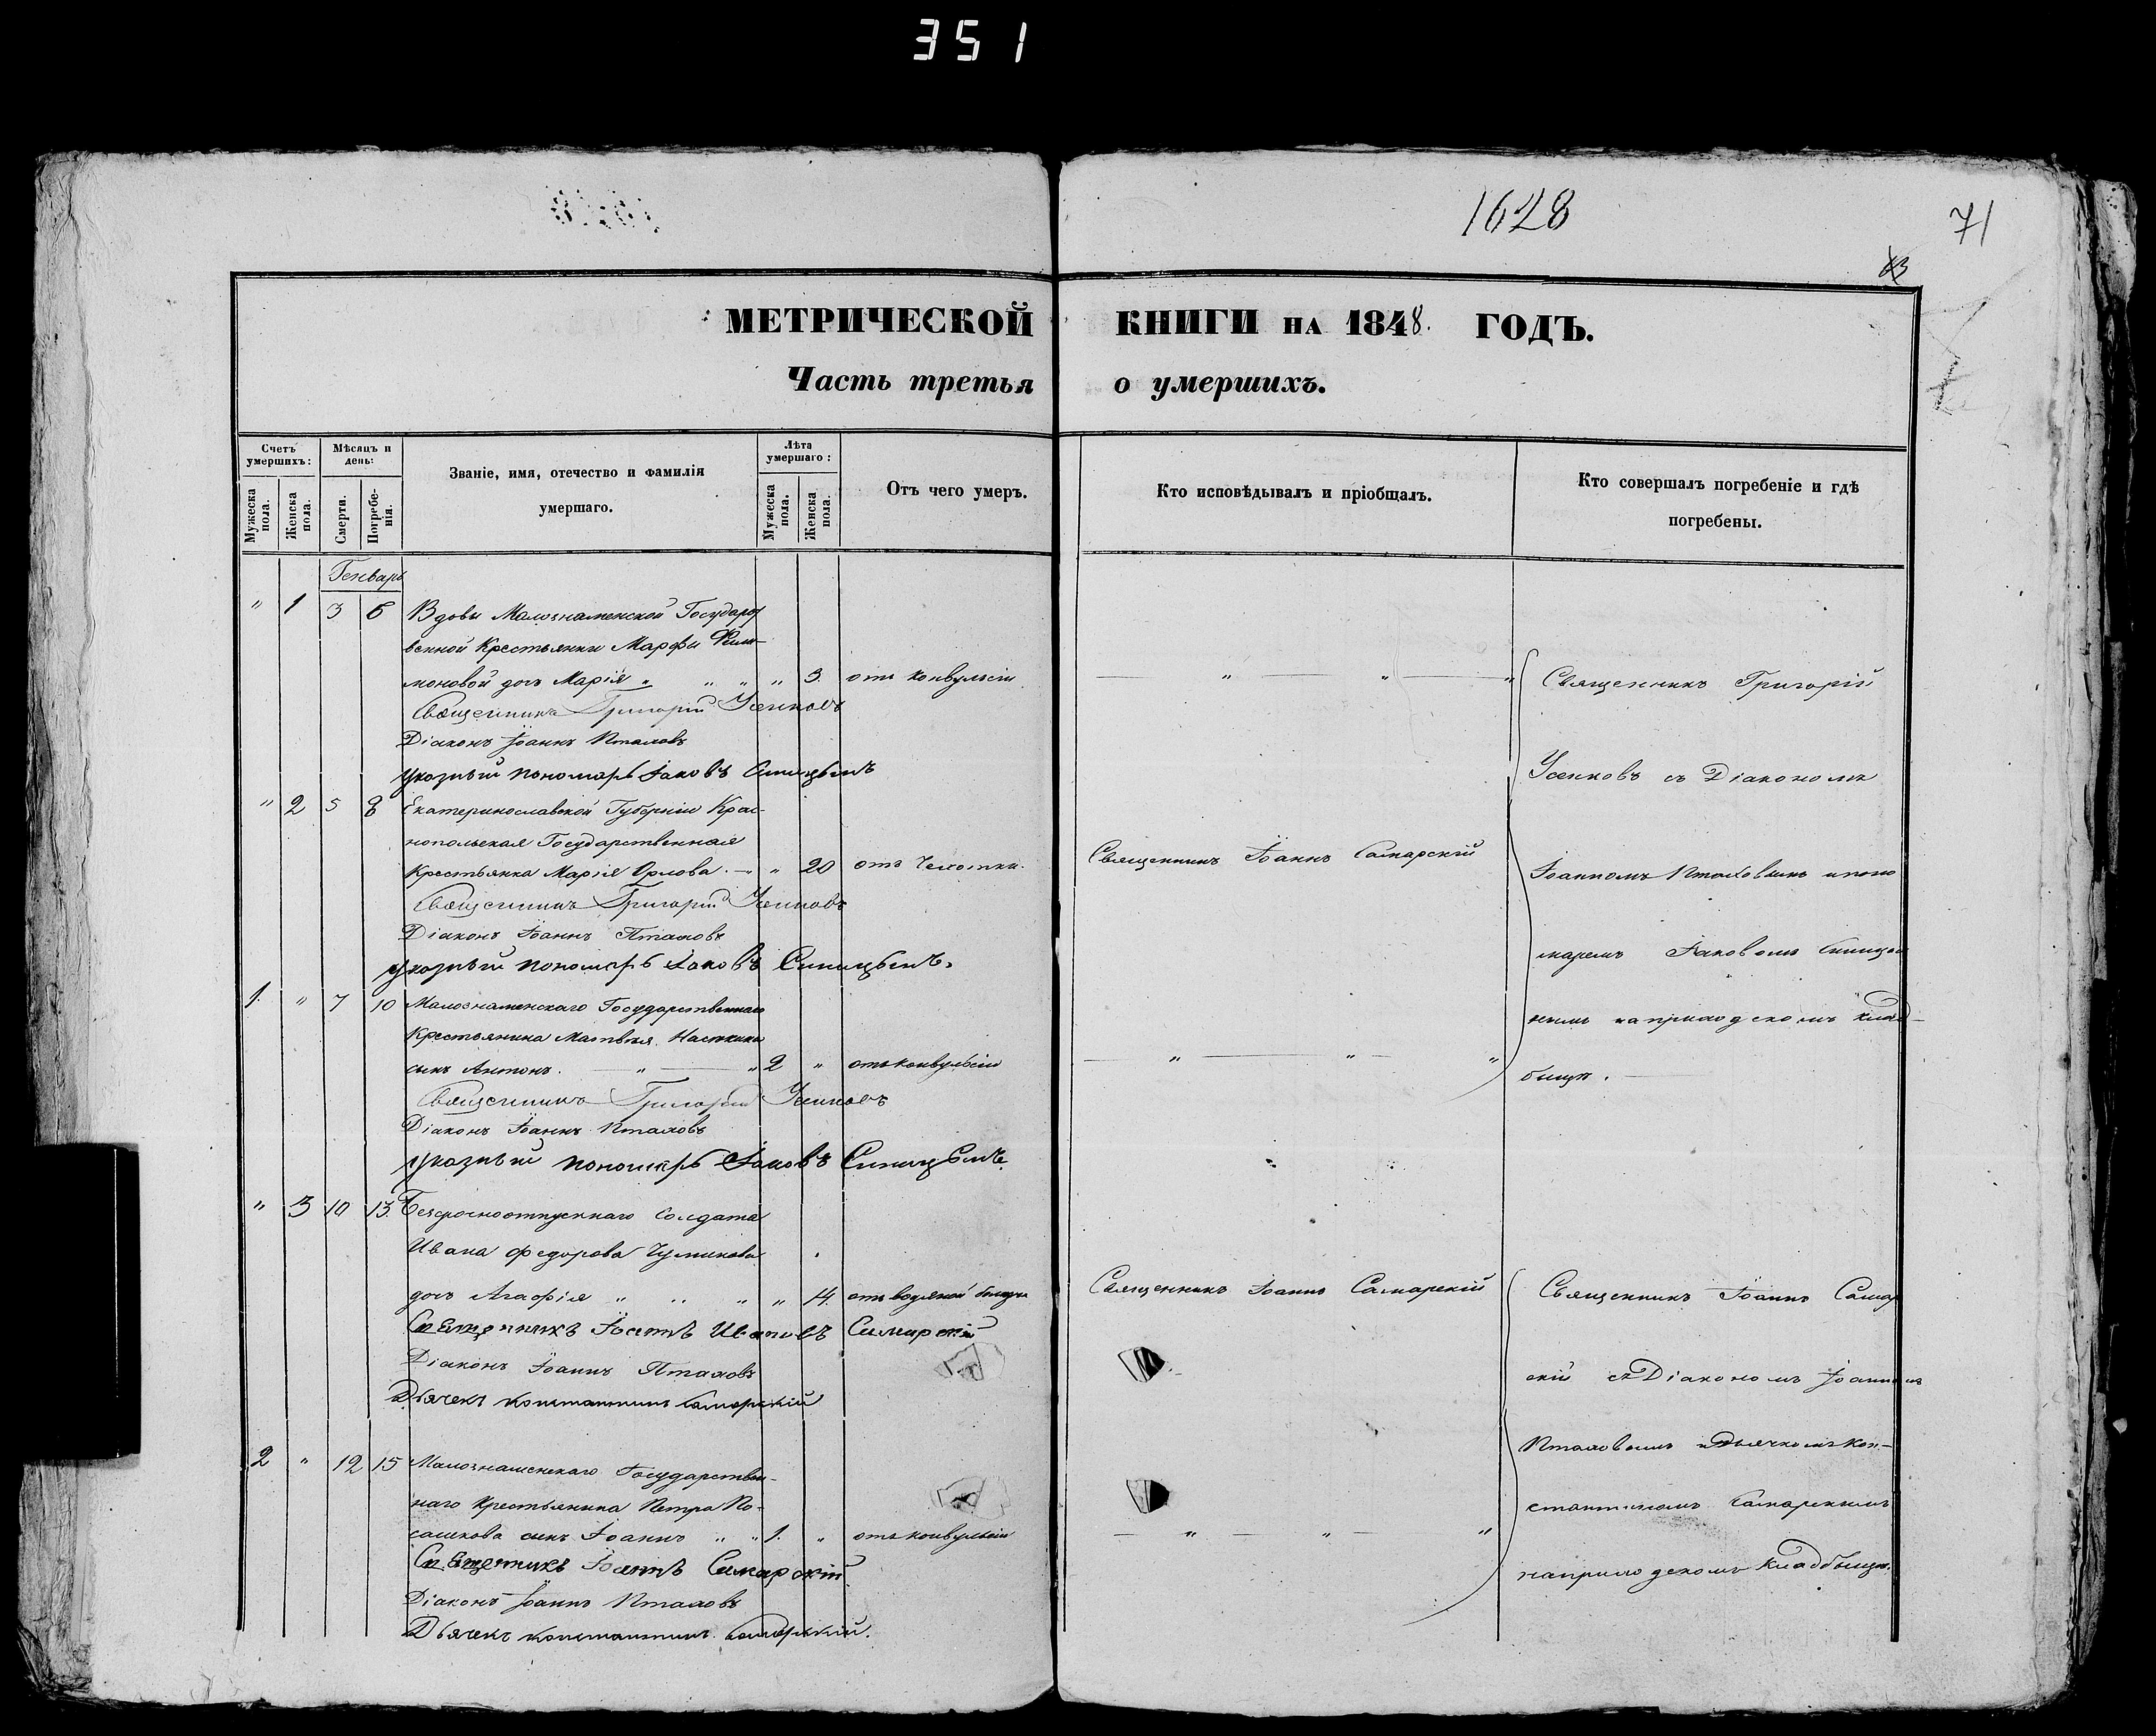 351
1628
71
МЕТРИЧЕСКОЙ КНИГИ НА 1848. ГОДЪ.
Часть третья о умершихъ.
Счетъ умершихъ:
Мужеска пола.
Женска пола.
Мѣсяцъ и день:
Смерти.
Погребенія.
Званіе, имя, отечество и фамилія
умершаго.
Лѣта умершаго:
Мужеска пола.
Женска пола.
Отъ чего умеръ.
Кто исповѣдывалъ и пріобщалъ.
Кто совершалъ погребеніе и гдѣ
погребены.
Генварь
" 1 3 6 Вдовы Малознаменской Государст
венной Крестьянки Марфы Фили-
моновой дочь Марія " " " " 3. отъ конвульсіи " " "
Священникъ Григорій Усенковъ
Діаконъ Іоаннъ Птаховъ
Указный пономарь Іаковъ Синицынъ
" 2 5 8 Екатеринославской Губерніи Крас-
нопольская Государственная
Крестьянка Марія Орлова. " " 20 отъ Чахотки. Священникъ Іоаннъ Самарскій
Священникъ Григорій Усенковъ
Діаконъ Іоаннъ Птаховъ
Указный пономарь Іаковъ Синицынъ.
1. " 7 10 Малознаменскаго Государственнаго
Крестьянина Матвѣя
сынъ Антонъ. " " 2 " отъ конвульсіи " " "
Священникъ Григорій Усенковъ
Діаконъ Іоаннъ Птаховъ
Указный пономарь Іаковъ Синицынъ.
Священникъ Григорій
Усенковъ съ Діакономъ
Іоанномъ Птаховымъ и поно
маремъ Іаковомъ Синицы
нымъ на приходскомъ клад-
бищѣ.
" 3 10 13. Безсрочноотпускнаго Солдата
Ивана Федорова Чумикова
дочь Агафія " " " " 14. отъ водяной болѣзни Священникъ Іоаннъ Самарскій
Священникъ Іоаннъ Ивановъ Самарскій
Діаконъ Іоаннъ Птаховъ
Дьячекъ Константинъ Самарскій
2 " 12 15 Малознаменскаго Государствен-
наго Крестьянина Петра По-
сашкова сынъ Іоаннъ " " 1. " отъ конвульсіи " " "
Священникъ Іоаннъ Самарскій
Діаконъ Іоаннъ Птаховъ
Дьячекъ Константинъ Самарскій.
Священникъ Іоаннъ Самар
скій съ Діакономъ Іоанномъ
Птаховымъ и Дьячкомъ Кон-
стантиномъ Самарскимъ
на приходскомъ кладбищѣ.